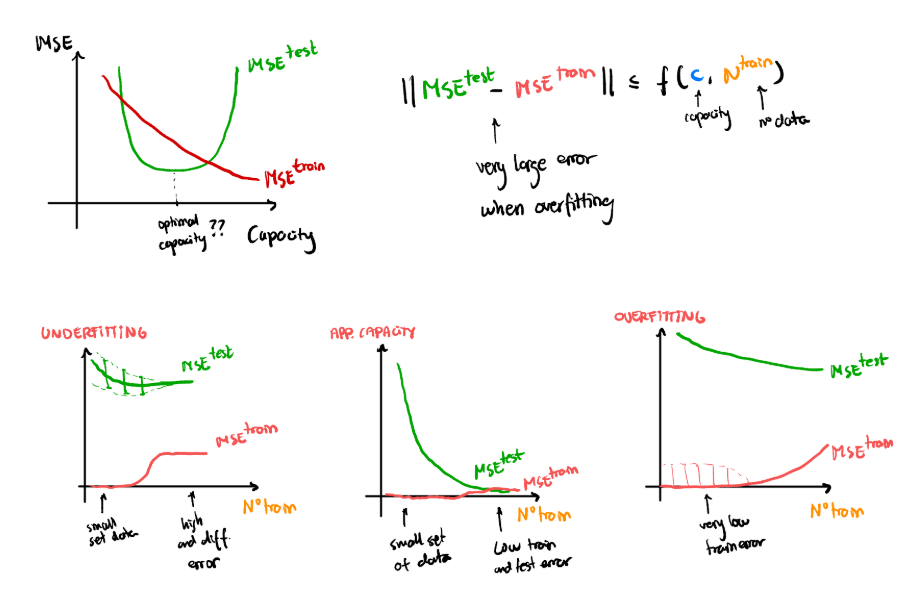 MSE
MSE test
MSE train
optimal
capacity ??
Capacity
|| MSE test - MSE train || ≤ f(c, N train)
capacity
N° data
very large error
when overfitting
UNDERFITTING
MSE test
MSE train
N° train
small
set data
high
and diff.
error
APP. CAPACITY
MSE test
MSE train
N° train
small set
of data
low train
and test error
OVERFITTING
MSE test
MSE train
N° train
very low
train error